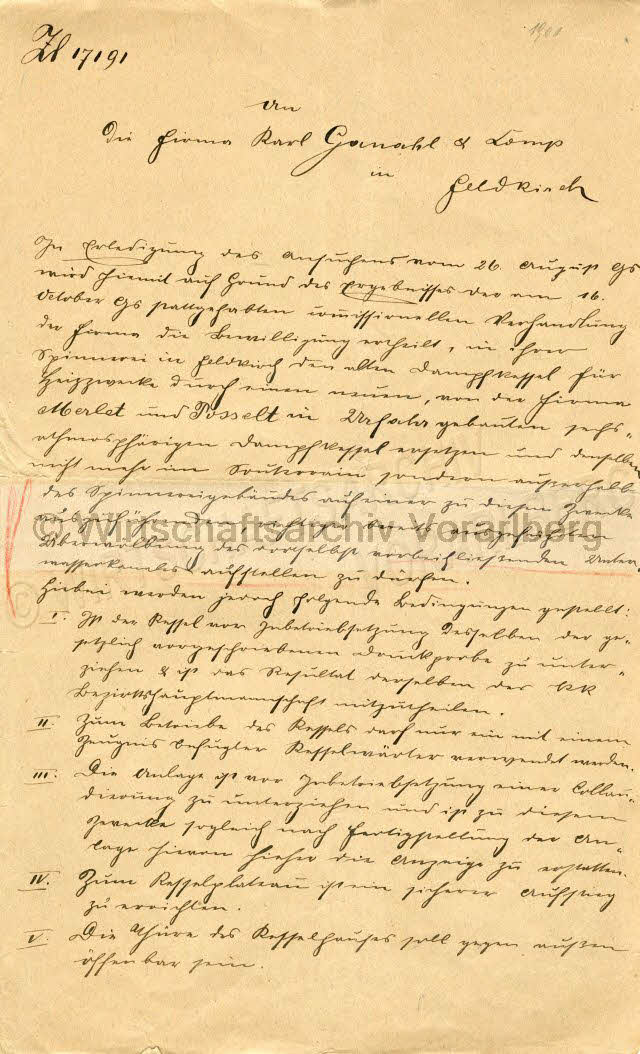 1901
Zl 17191
An
die Firma Karl Ganahl & Comp
in
Feldkirch
In Erledigung des Ansuchens vom 26. August Gs
wird hiemit auf Grund des Ergebnisses der am 16.
October Gs stattgehabten commissionellen Verhandlung
der Firma die Bewilligung ertheilt, in ihrer
Spinnerei in Feldkirch den alten Dampfkessel für
Heizzwecke durch einen neuen, von der Firma
Merlet und Posselt in Urfahr gebauten sechs-
athmosphärigen Dampfkessel ersetzen und denselben
nicht mehr im Souterrain sondern ausserhalb
des Spinnereigebäudes auf einer zu diesem Zwecke
© Wirtschaftsarchiv Vorarlberg
Überwölbung des daselbst vorbeifliessenden Unter-
wasserkanales aufstellen zu dürfen.
Hiebei werden jedoch folgende Bedingungen gestellt:
I. Ist der Kessel vor Inbetriebsetzung desselben der ge-
setzlich vorgeschriebenen Druckprobe zu unter-
ziehen & ist das Resultat derselben der kk
Bezirkshauptmannschaft mitzutheilen.
II. Zum Betriebe des Kessels darf nur ein mit einem
Zeugnis befugter Kesselwärter verwendet werden.
III. Die Anlage ist vor Inbetriebsetzung einer Collau-
dierung zu unterziehen und ist zu diesem
Zwecke sogleich nach Fertigstellung der An-
lage hievon hieher die Anzeige zu erstatten.
IV. Zum Kesselplateau ist ein sicherer Aufstieg
zu errichten.
V. Die Thüre des Kesselhauses soll gegen außen
öffenbar sein.